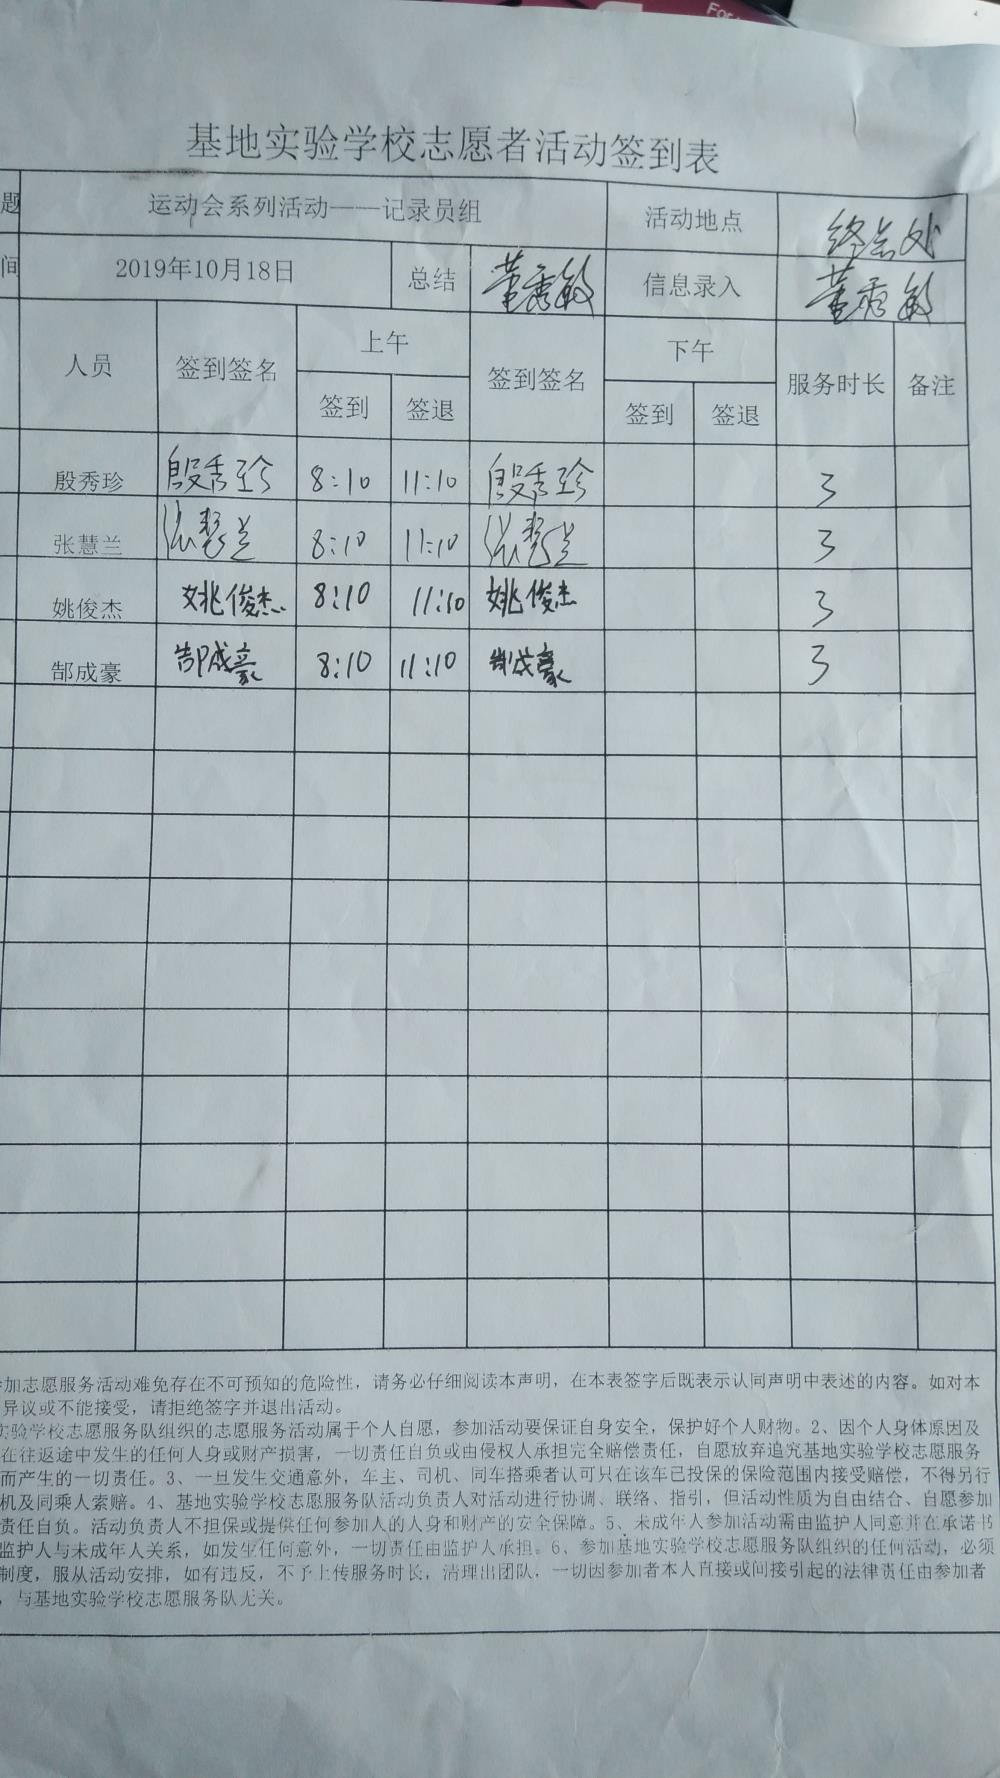 For
基地实验学校志愿者活动签到表
题 运动会系列活动——记录员组 活动地点 终点处
间 2019年10月18日 总结 董秀敏 信息录入 董秀敏
人员 签到签名 上午 签到签名 下午 服务时长 备注
签到 签退 签到 签退
殷秀珍 殷秀珍 8:10 11:10 殷秀珍 3
张慧兰 张慧兰 8:10 11:10 张慧兰 3
姚俊杰 姚俊杰 8:10 11:10 姚俊杰 3
郜成豪 郜成豪 8:10 11:10 郜成豪 3
参加志愿服务活动难免存在不可预知的危险性，请务必仔细阅读本声明，在本表签字后既表示认同声明中表述的内容。如对本
异议或不能接受，请拒绝签字并退出活动。
实验学校志愿服务队组织的志愿服务活动属于个人自愿，参加活动要保证自身安全，保护好个人财物。2、因个人身体原因及
在往返途中发生的任何人身或财产损害，一切责任自负或由侵权人承担完全赔偿责任，自愿放弃追究基地实验学校志愿服务
而产生的一切责任。3、一旦发生交通意外，车主、司机、同车搭乘者认可只在该车已投保的保险范围内接受赔偿，不得另行
机及同乘人索赔。4、基地实验学校志愿服务队活动负责人对活动进行协调、联络、指引，但活动性质为自由结合、自愿参加
责任自负。活动负责人不担保或提供任何参加人的人身和财产的安全保障。5、未成年人参加活动需由监护人同意并在承诺书
监护人与未成年人关系，如发生任何意外，一切责任由监护人承担。6、参加基地实验学校志愿服务队组织的任何活动，必须
制度，服从活动安排，如有违反，不予上传服务时长，清理出团队，一切因参加者本人直接或间接引起的法律责任由参加者
，与基地实验学校志愿服务队无关。